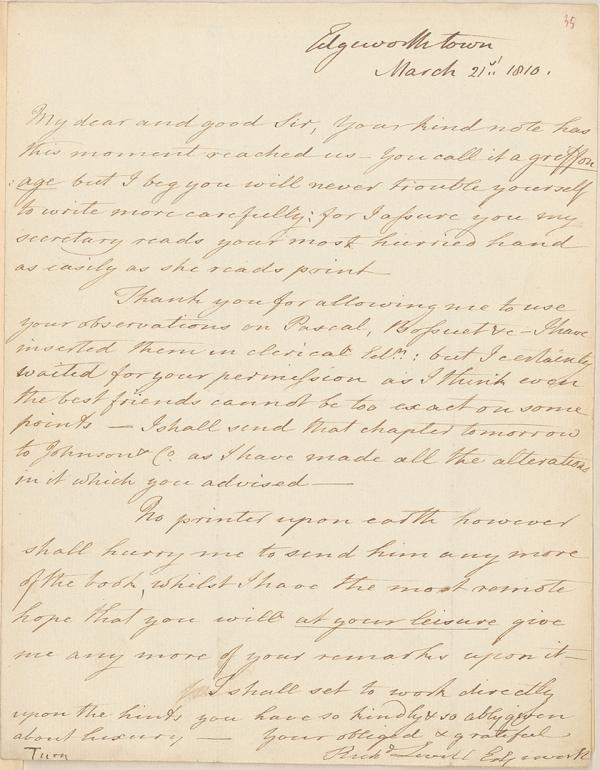 35
Edgeworthtown
March 21st. 1810.
My dear and good Sir, Your kind note has
this moment reached us – You call it a griffon
:age but I beg you will never trouble yourself
to write more carefully; for I assure you my
secretary reads your most hurried hand
as easily as she reads print
Thank you for allowing me to use
your observations on Pascal, Bossuet &c – I have
inserted them in clerical Edn.: but I certainly
waited for your permission as I think even
the best friends cannot be too exact on some
points — I shall send that chapter tomorrow
to Johnson & Co. as I have made all the alterations
in it which you advised —
No printer upon earth however
shall hurry me to send him any more
of the book, whilst I have the most remote
hope that you will at your leisure give
me any more of your remarks upon it –
I shall set to work directly
upon the hints you have so kindly & so ably given
about luxury — Your obliged & grateful
Richd Lovell Edgeworth
Turn